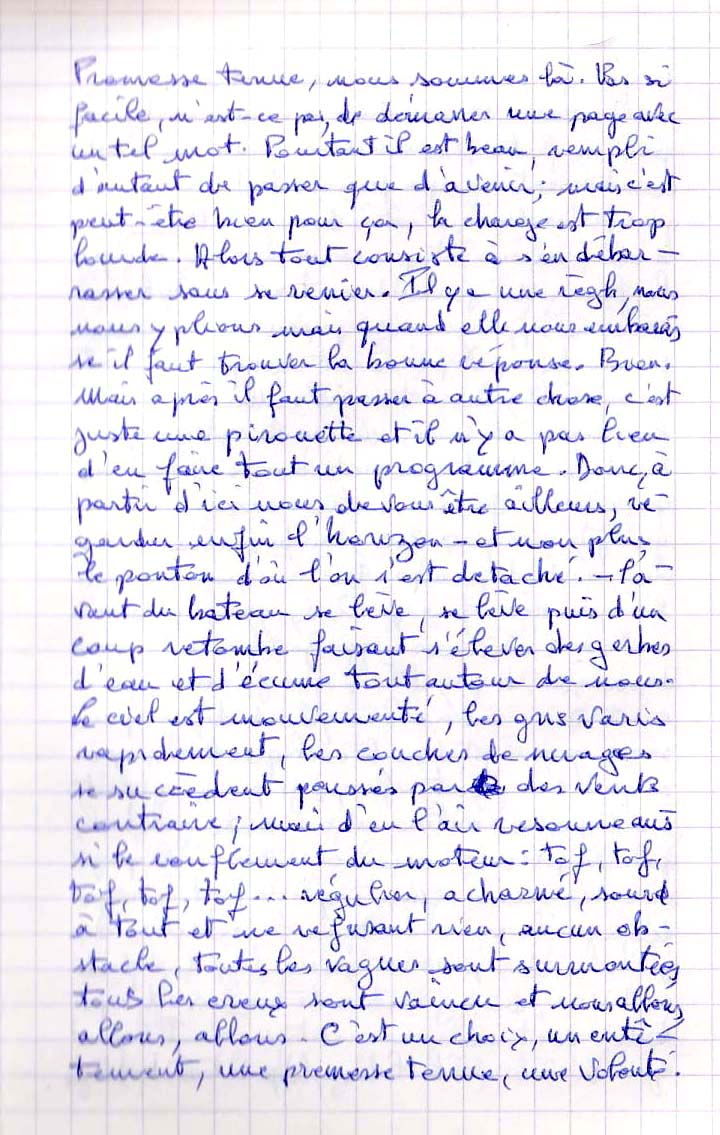 Promesse tenue, nous sommes là. Pas si
facile, n'est-ce pas, de démarrer une page avec
un tel mot. Pourtant il est beau, rempli
d'autant de passer que d'avenir; mais c'est
peut-être bien pour ça, la charge est trop
lourde. Alors tout consiste à s'en débar-
rasser sans se renier. Il y a une règle, nous
nous y plions mais quand elle nous embaras
se il faut trouver la bonne réponse. Bien.
Mais après il faut passer à autre chose, c'est
juste une pirouette et il n'y a pas lieu
d'en faire tout un programme. Donc, à
partir d'ici nous devons être ailleurs, re-
garder enfin l'horizon - et non plus
le ponton d'où l'on s'est detaché. - l'a-
vant du bateau se lève, se lève puis d'un
coup retombe faisant s'élever des gerbes
d'eau et d'écume tout autour de nous.
Le ciel est mouvementé, les gris varis
rapidement, les couches de nuages
se succèdent poussés par des vents
contraire; mais d'en l'air resonne aus
si le ronflement du moteur: tof, tof,
tof, tof, tof... régulier, acharné, sourd
à tout et ne refusant rien, aucun ob-
stacle, toutes les vagues sont surmontées,
tous les creux sont vaincu et nous allons,
allons, allons. C'est un choix, un entê-
tement, une promesse tenue, une volonté.